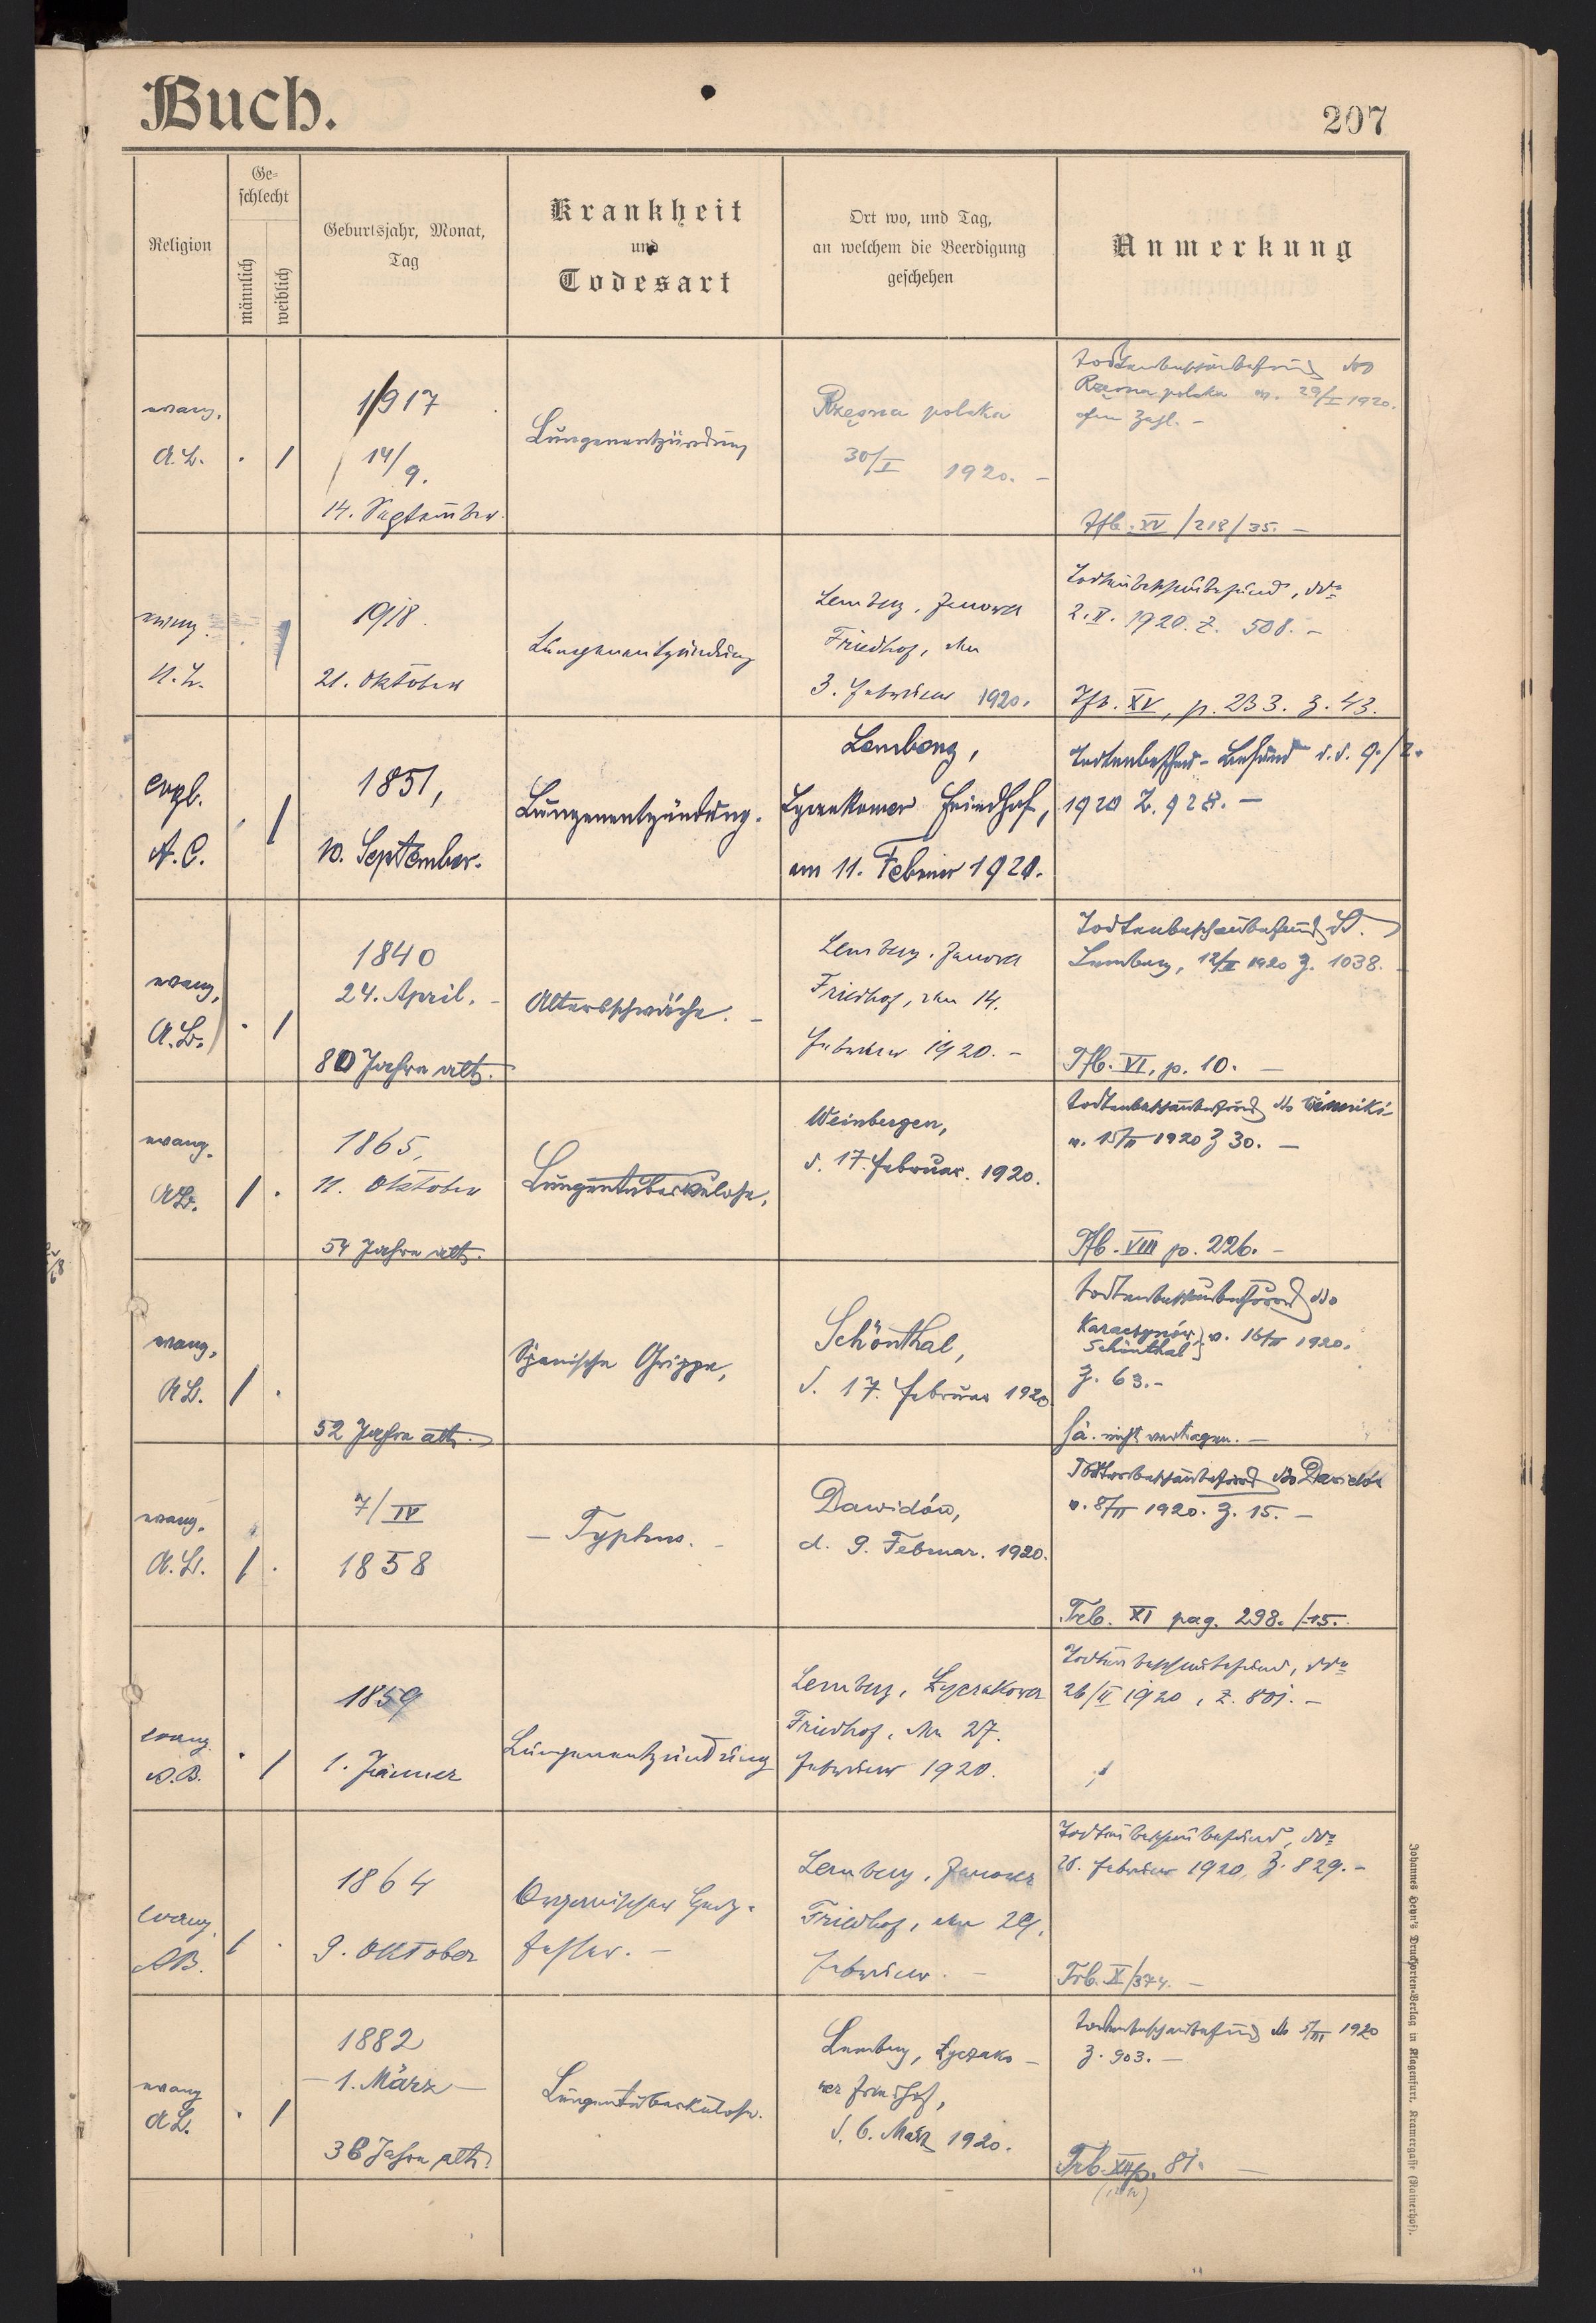 Buch.
207
Religion
Ge-
schlecht
männlich
weiblich
Geburtsjahr, Monat,
Tag
Krankheit
und
Todesart
Ort wo, und Tag,
an welchem die Beerdigung
geschehen
Anmerkung
evang.
A.B.
. /
1917
14/9.
14. September
Lungenentzündung
Rzęsna polska
30/I 1920. -
Todtenbeschaubefund ddo
Rzęsna polska v. 29/I 1920.
ohne Zahl. -
Tfb. XV /218/35. -
evang.
A.B.
. /
1918.
21. Oktober
Lungenentzündung
Lemberg, Janower
Friedhof, den
3. Februar 1920.
Todtenbeschaubefund, ddo
2.II. 1920. Z. 508. -
Tfb. XV, p. 233. Z. 43.
evgl.
A.C.
. /
1851,
10. September.
Lungenentzündung.
Lemberg,
Lyczakower Friedhof,
am 11. Februar 1920.
Todtenbeschau-Befund d.d. 9./2.
1920 Z. 928. -
evang.
A.B.
. /
1840
24. April. -
80 Jahre alt.
Altersschwäche. -
Lemberg, Janower
Friedhof, den 14.
Februar 1920. -
Todtenbeschaubefund dd.
Lemberg, 12/II 1920 Z. 1038.
Tfb. VI, p. 10. -
evang.
AB.
/ .
1865,
11. Oktober
54 Jahre alt.
Lungentuberkulose.
Weinbergen,
d. 17. Februar. 1920.
Todtenbeschaubefund ddo Winniki
v. 15/II 1920 Z 30. -
Tfb. VIII p. 226. -
evang.
AB.
/ .
52 Jahre alt.
Spanische Grippe,
Schönthal,
d. 17. Februar 1920
Todtenbeschaubefund ddo
Karaczynów
Schönthal } v. 16/II 1920.
Z. 63. -
evang.
A.B.
/ .
7/IV
1858
- Typhus. -
Dawidów,
d. 9. Februar. 1920.
Todtenbeschaubefund ddo Dawidów
v. 8/II 1920. Z. 15. -
Trb. XI pag. 298. /15.
evang.
A.B.
. /
1859
1. Jänner
Lungenentzündung
Lemberg, Łyczakower
Friedhof, den 27.
Februar 1920.
Todtenbeschaubefund, ddo
26/II 1920, Z. 801. -
evang.
AB.
/ .
1864
9. Oktober
Organischer Herz-
fehler. -
Lemberg, Janower
Friedhof, den 29.
Februar. -
Todtenbeschaubefund, ddo
28. Februar 1920, Z. 829. -
Trb. X/374. -
evang
AB.
. /
1882
- 1. März -
38 Jahre alt.
Lungentuberkulose.
Lemberg, Łyczako-
wer Friedhof,
d. 6. März 1920.
Todtenbeschaubefund ddo 5/III 1920
Z. 903. -
Trb. XII p. 81. -
Johannes Heyn's Drucksorten-Verlag in Klagenfurt, Kramergasse (Rainerhof).